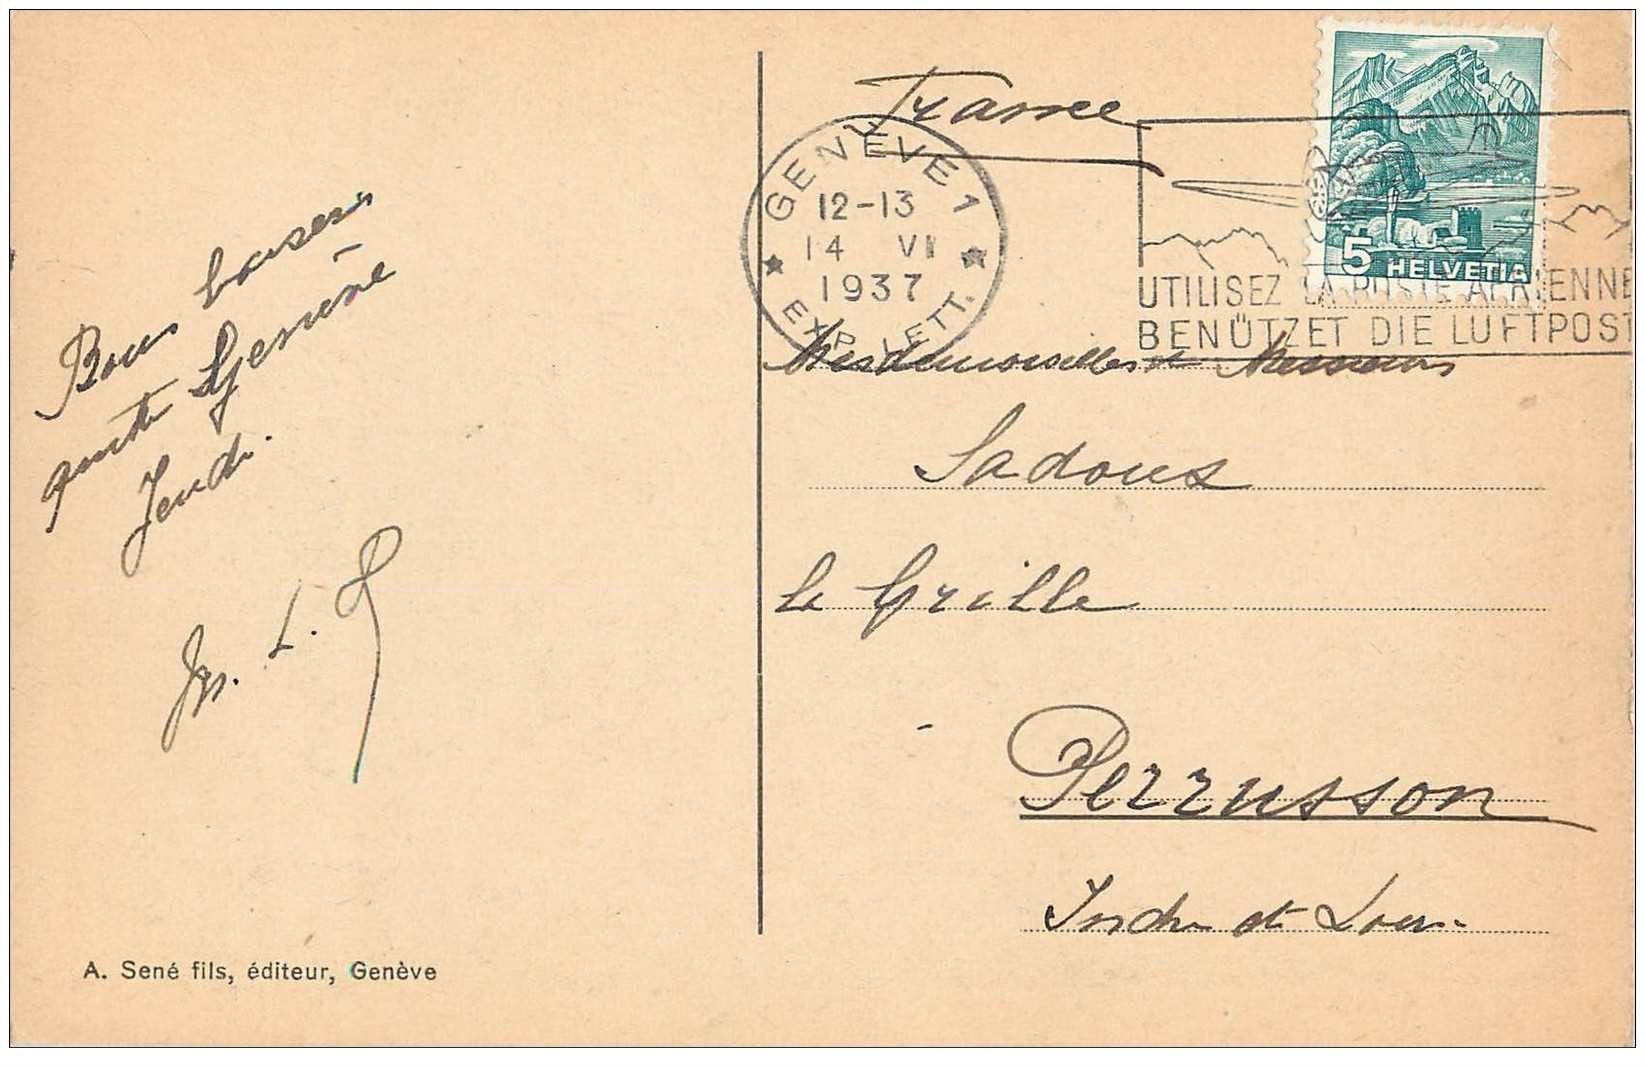 Bons baisers
quitte Genève
Jeudi.
M. L. P
A. Sené fils, éditeur, Genève
France
GENÈVE 1
12-13
14 VII
1937
EXP. LETT.
5 HELVETIA
UTILISEZ LA POSTE AÉRIENNE
BENÜTZET DIE LUFTPOST
Mesdemoiselles et Messieurs
Sadoux
la Grille
Perrusson
Indre et Loire